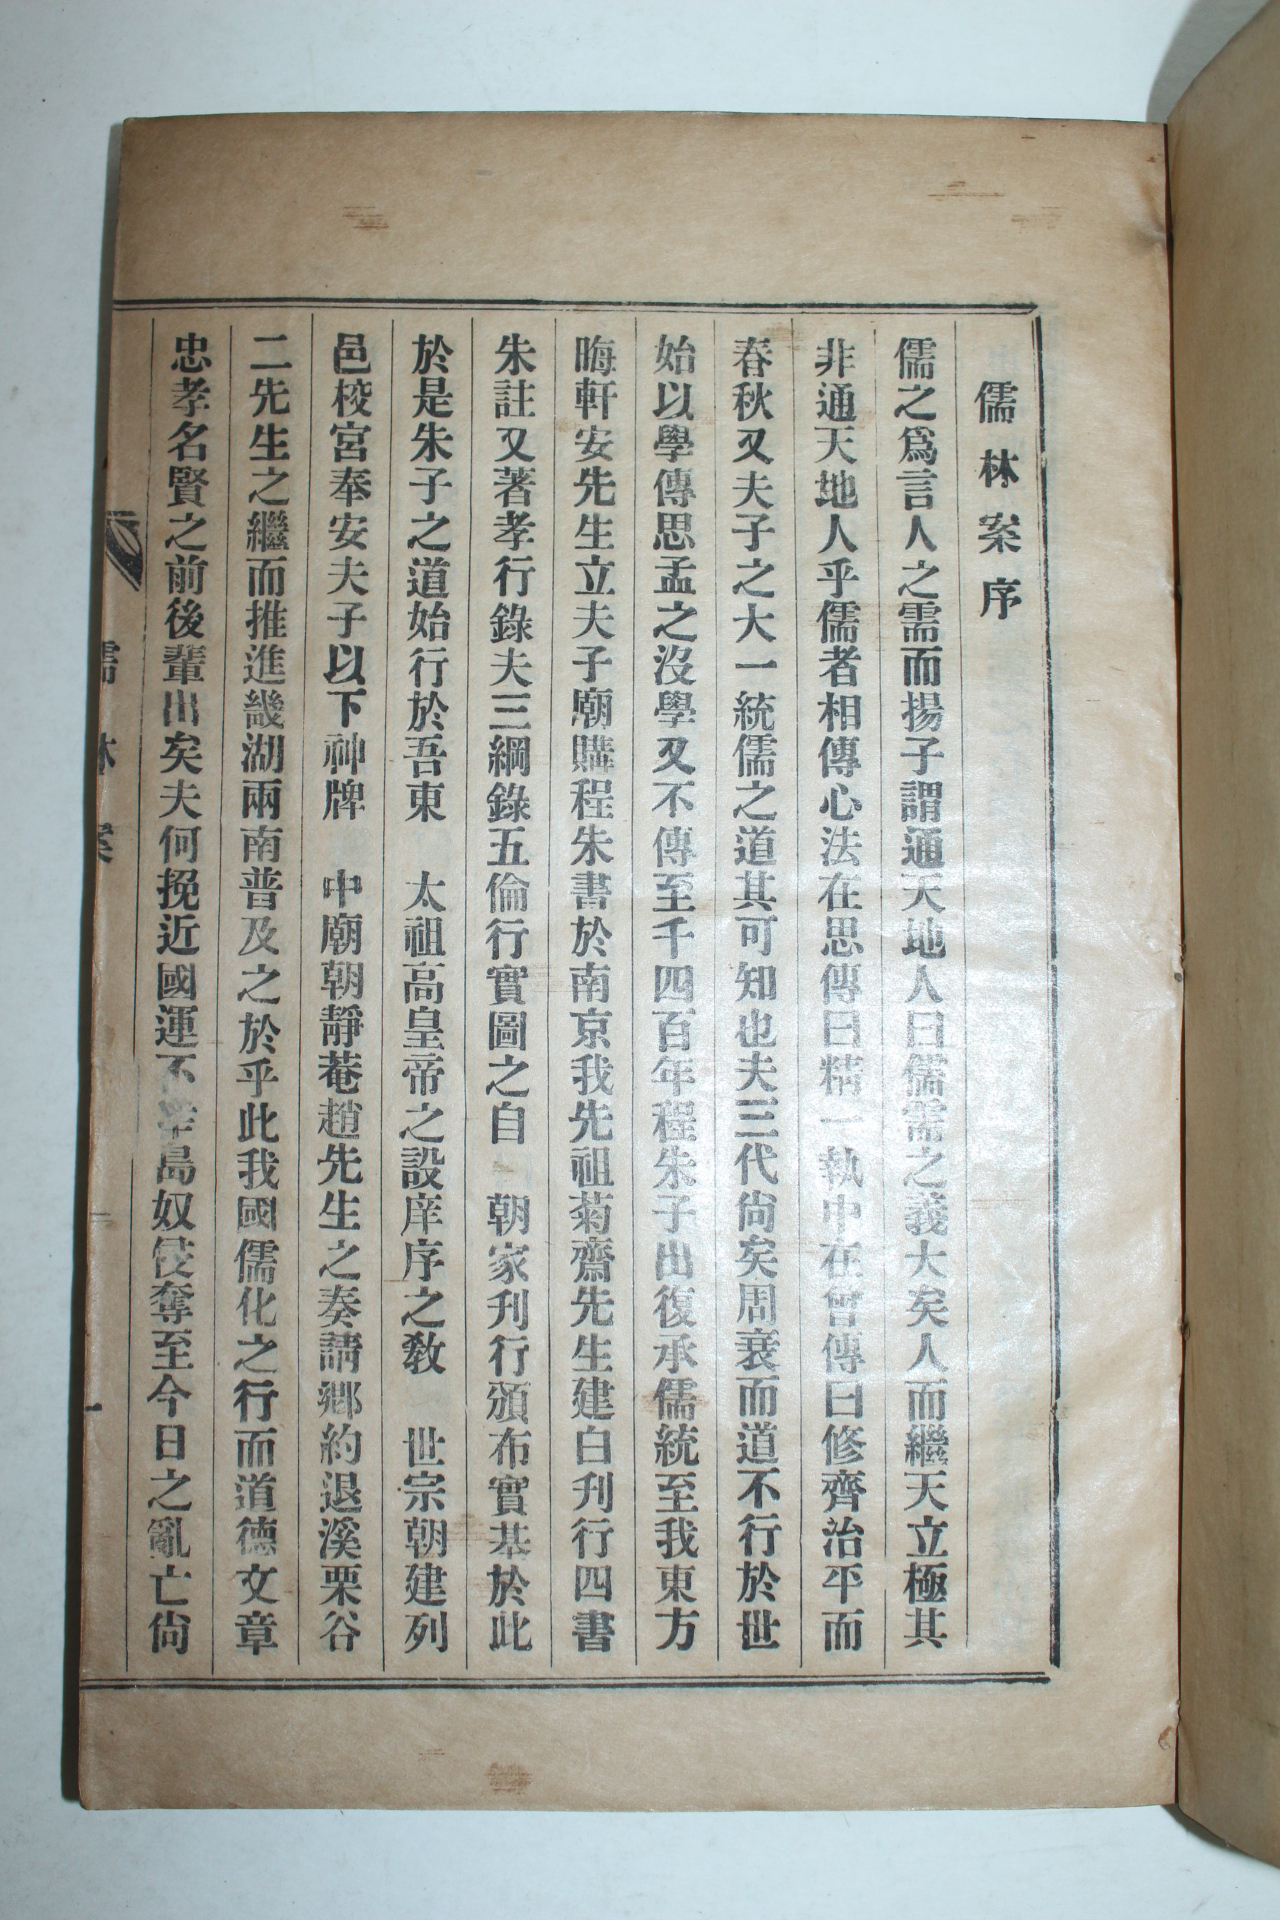 儒林案序
儒之爲言人之需而揚子謂通天地人曰儒需之義大矣人而繼天立極其
非通天地人乎儒者相傳心法在思傳曰精一執中在曾傳曰修齊治平而
春秋又夫子之大一統儒之道其可知也夫三代尙矣周衰而道不行於世
始以學傳思孟之沒學又不傳至千四百年程朱子出復承儒統至我東方
晦軒安先生立夫子廟購程朱書於南京我先祖菊齋先生建白刊行四書
朱註又著孝行錄夫三綱錄五倫行實圖之自 朝家刋行頒布實基於此
於是朱子之道始行於吾東 太祖高皇帝之設庠序之敎 世宗朝建列
邑校宮奉安夫子以下神牌 中廟朝靜菴趙先生之奏請鄕約退溪栗谷
二先生之繼而推進畿湖兩南普及之於乎此我國儒化之行而道德文章
忠孝名賢之前後輩出矣夫何挽近國運不幸島奴侵奪至今日之亂亡尙
儒林案
一